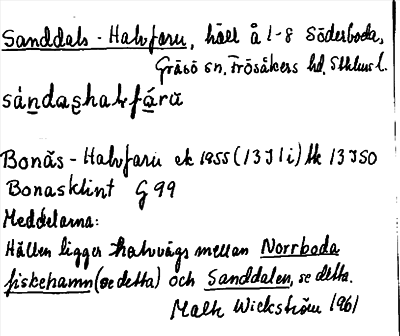 Sanddals-Halvfaru, häll å 1-8 Söderboda,
Gräsö sn, Frösåkers hd, Sthlms l.
sánda̱s̱halvfá̱rŭ
Bonäs-Halvfaru ek 1955 (13J1i) tk 13J50
Bonasklint G 99
Meddelarna:
Hällen ligger halvvägs mellan Norrboda
fiskehamn (se detta) och Sanddalen, se detta.
Malk Wickström 1961